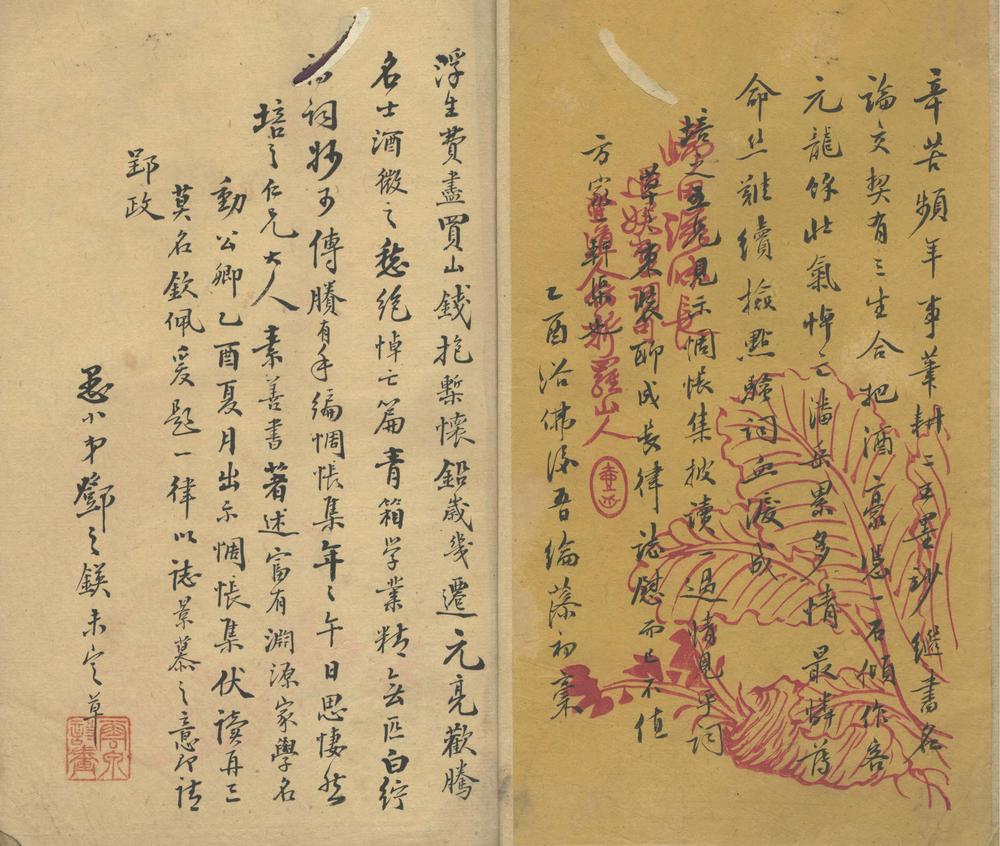 辛苦頻年事筆耕二王墨妙繼書名
論交契有三生合把酒豪憑一石傾作客
元龍餘壯氣悼亡潘岳累多情最憐薄
命絲難續撿點驗詞血淚成
培之五兄見示惆悵集披讀一過情見乎詞
尊
束裝聊成長律誌慰而已不值
方家
乙酉浴佛後吾綸藻初稾
浮生費盡買山錢抱槧懷鉛歲幾遷元亮歡騰
名士酒微之愁絕悼亡篇青箱学業精無匹白紵
詞抄可傳賸有手編惆悵集年〻午日思悽然
培之仁兄大人素善書著述富有淵源家學名
動公卿乙酉夏月出示惆悵集伏讀再三
莫名欽佩爰題一律以誌景慕之意即請
郢政
愚小弟鄧之鍈未定草